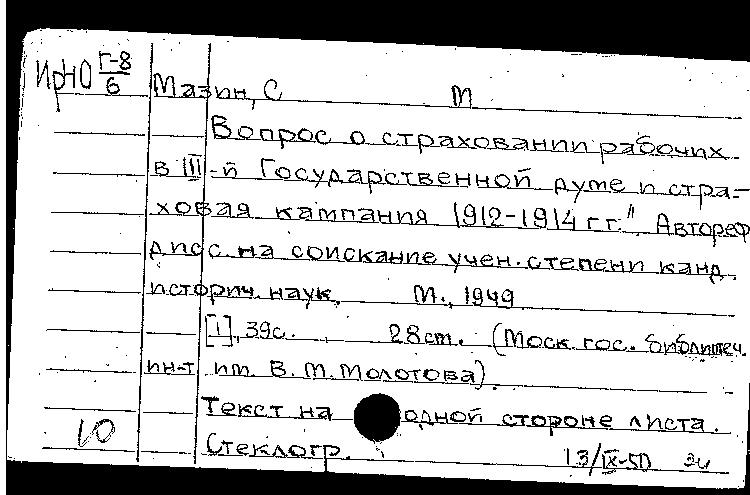 ИрНО Г-8/6
Мазин, С М
Вопрос о страховании рабочих
в III-й Государственной думе и стра-
ховая кампания 1912-1914 г.г." Автореф
дисс. на соискание учен. степени канд.
историч. наук. М., 1949
[1], 39с. 28 ст. (Моск. гос. библиотеч.
ин-т им. В. М. Молотова).
Текст на одной стороне листа.
Стеклогр.
13/IX-50